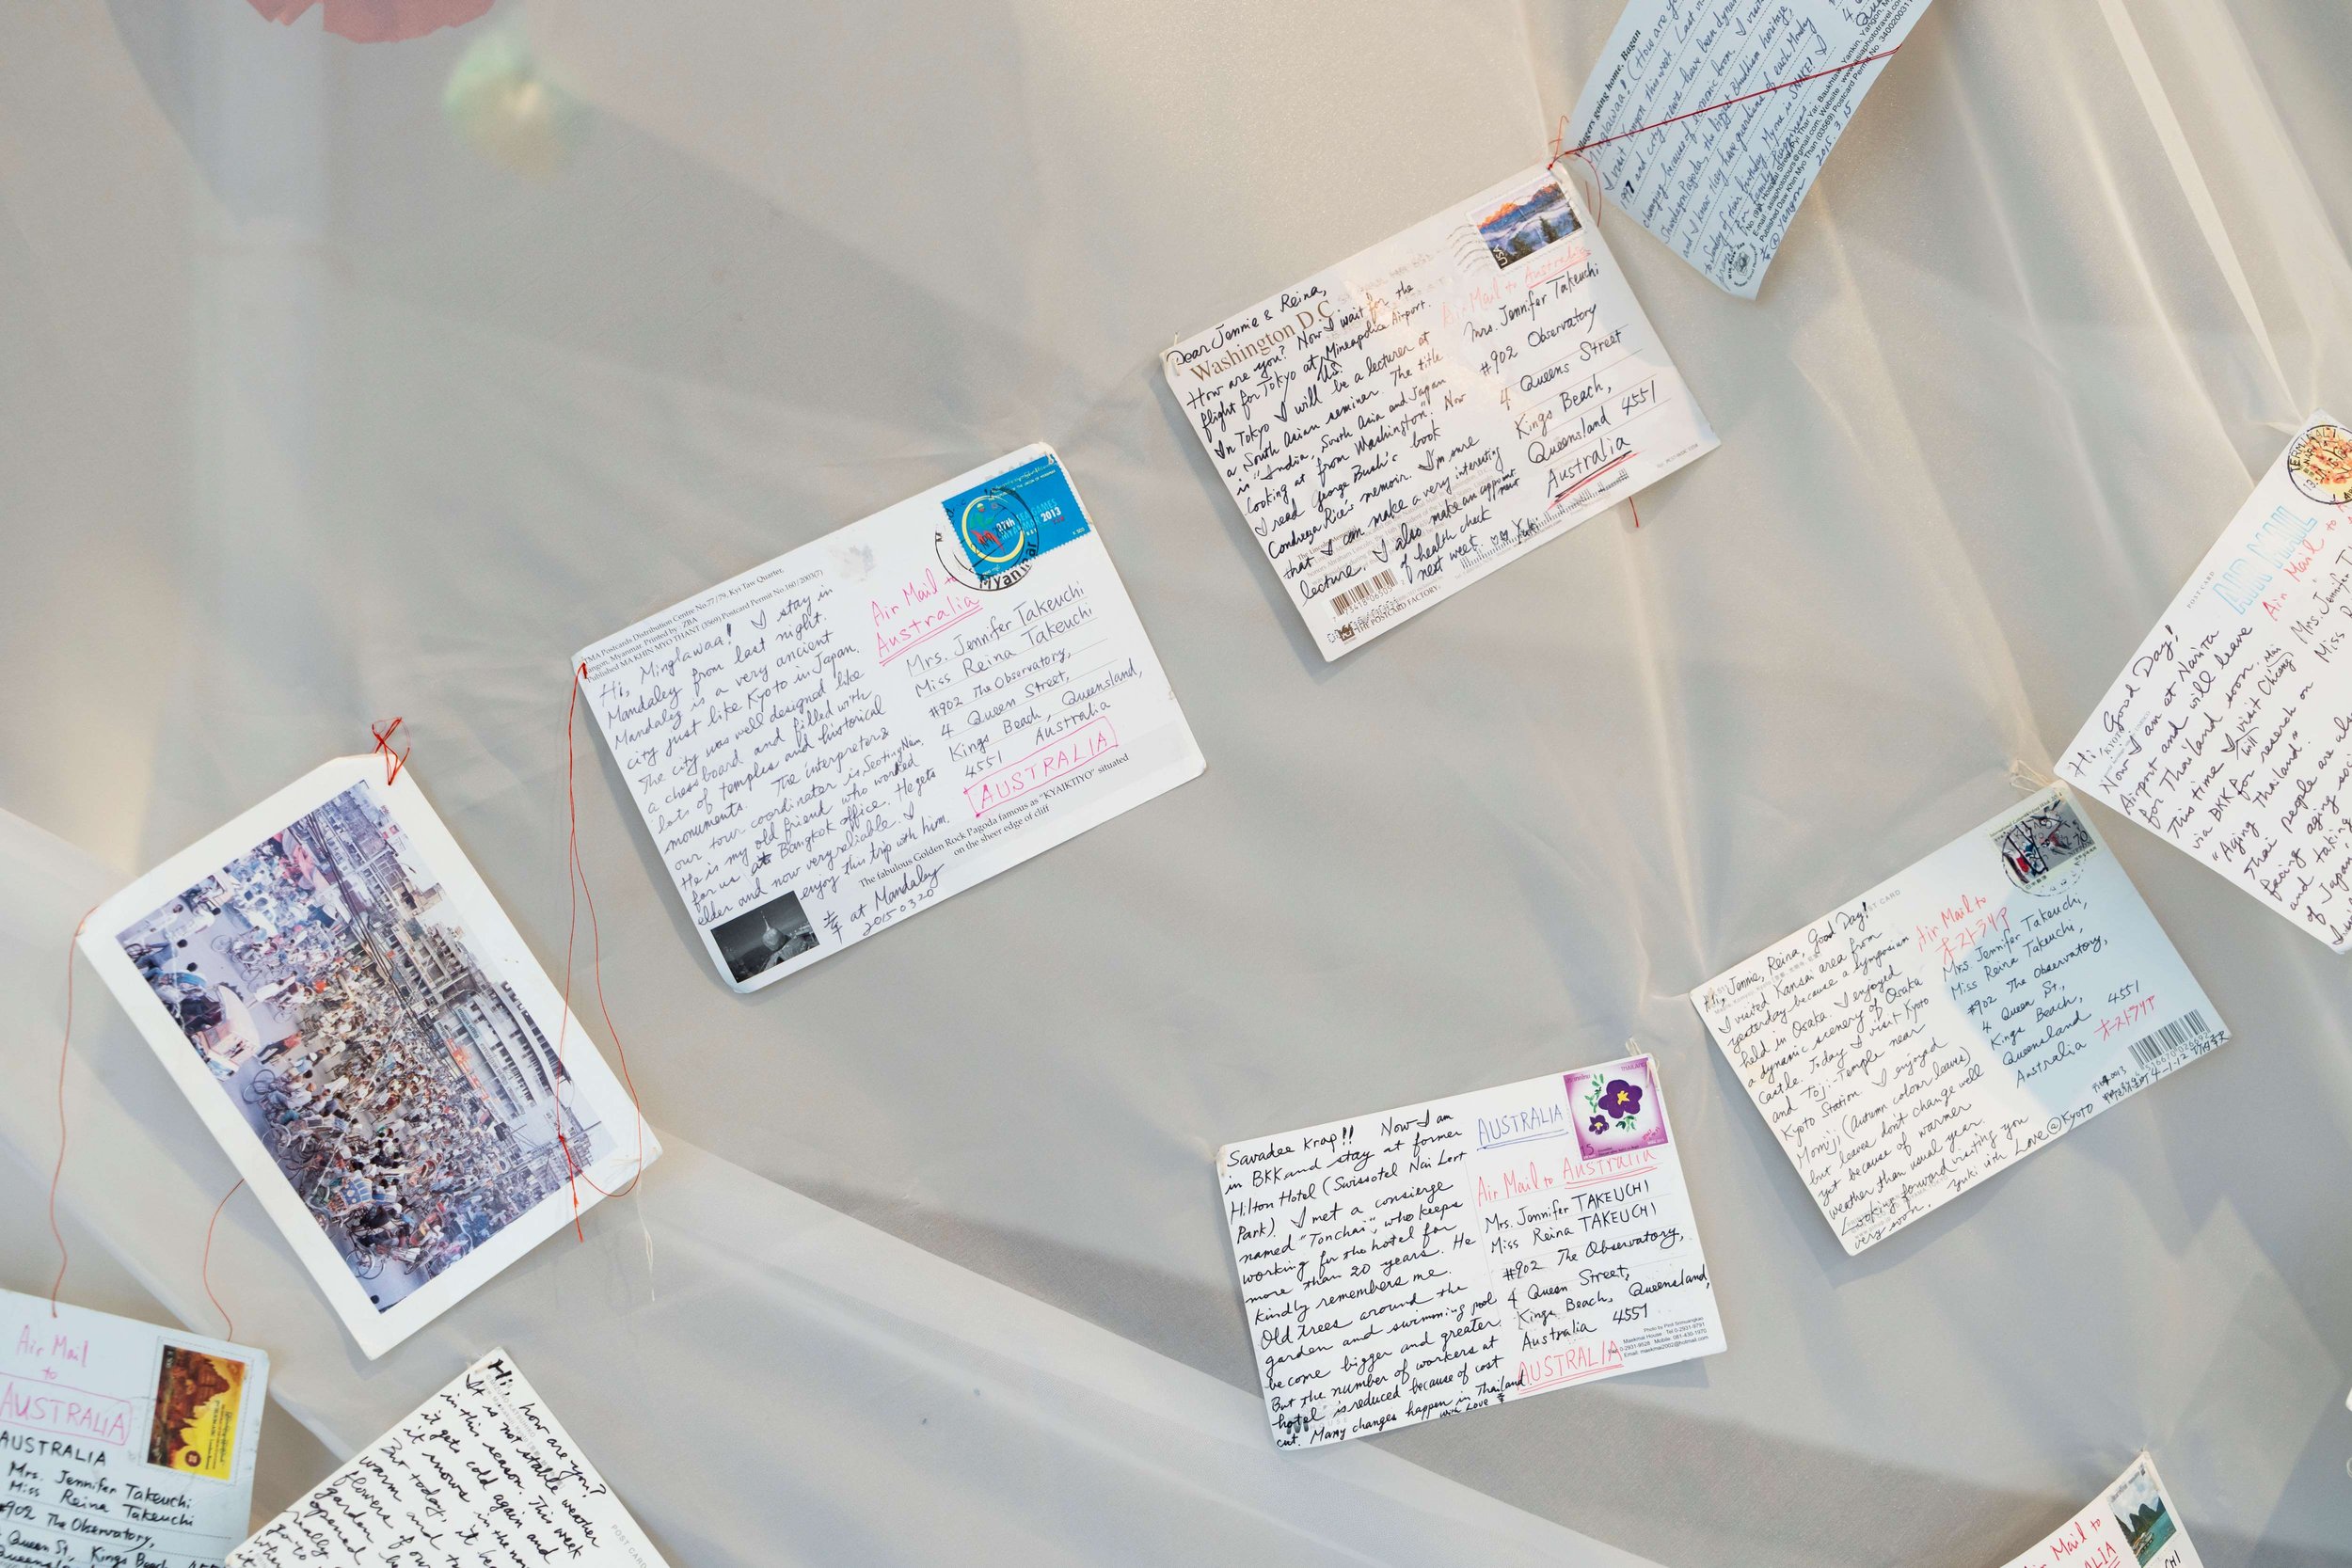 Villagers going home, Bagan
Minglawaa! (How are
I visit Yangon this week. Last
1997 and city views have been
changing because of economic boom. I
Shwedagon Pagoda, the biggest Buddhism heritage,
and I know they have guardians of each Monday
to Sunday of their birthday. Myne is SNAKE! I
pray for Family Happiness.
@ Yangon 2015. 3. 15
Dear Jennie & Reina,
Washington D.C.
How are you? Now I wait for the
flight for Tokyo at Mineapolice Airport.
U.S.
In Tokyo I will be a lecturer at
a South Asian seminar. The title
is "India, South Asia and Japan
Looking at from Washington". Now
I read George Bush's book
Condreeza Rice's memoir. I'm sure
that I can make a very interesting
lecture. I also make an appointment
of health check
next week. Yuki
THE POSTCARD FACTORY
USA
Air Mail to Australia
Mrs. Jennifer Takeuchi
#902 Observatory
4 Queens Street
Kings Beach,
Queensland 4551
Australia
MA Postcards Distribution Centre No.77/79, Kyi Taw Quarter,
Yangon, Myanmar. Printed by . ZBA
Published MA KHIN MYO THANT (3569) Postcard Permit No.160/2003(7)
Hi, Minglawaa! I stay in
Mandaley from last night.
Mandaley is a very ancient
city just like Kyoto in Japan.
The city was well designed like
a chess board and filled with
lots of temples and historical
monuments. The interpreter &
our tour coordinater is
He is my old friend who worked
for us at Bangkok office. He gets
elder and now very reliable. I
enjoy this trip with him.
The fabulous Golden Rock Pagoda famous as "KYAIKTIYO" situated
on the sheer edge of cliff
幸 at Mandaley
2015 03 20
27th SEA GAMES
MYANMAR 2013
Myanmar
Air Mail to
Australia
Mrs. Jennifer Takeuchi
Miss Reina Takeuchi
#902 The Observatory,
4 Queen Street,
Kings Beach, Queensland,
4551 Australia
AUSTRALIA
POST CARD
Hi, Good Day!
Now I am at Narita
Airport and will leave
for Thailand soon.
This time I will visit Chiang Mai
via BKK for research on
"Aging Thailand."
Thai people are
facing aging
and taking
of Japan
Air Mail to
Mrs. Jennifer
Miss
POST CARD
Hi, Jennie, Reina, Good Day!
I visited Kansai area from
yesterday because a symposium
held in Osaka. I enjoyed
a dynamic scenery of Osaka
Castle. Today I visit Kyoto
and Toji-Temple near
Kyoto Station. I enjoyed
Momiji (Autumn colour leaves)
but leaves don't change well
yet because of warmer
weather than usual year.
Looking forward visiting you
very soon.
Yuki with Love @ Kyoto
Air Mail to
オーストラリア
Mrs. Jennifer Takeuchi,
Miss Reina Takeuchi,
#902 The Observatory,
4 Queen St.,
Kings Beach, 4551
Queensland
Australia オーストラリア
Savadee Krap!! Now I am
in BKK and stay at former
Hilton Hotel (Swissotel Nai Lert
Park). I met a concierge
named "Tonchai", who keeps
working for the hotel for
more than 20 years. He
kindly remembers me.
Old trees around the
garden and swimming pool
become bigger and greater.
But the number of workers at
hotel is reduced because of cost
cut. Many changes happen in Thailand
with Love 幸
THAILAND
15
AUSTRALIA
Air Mail to Australia
Mrs. Jennifer TAKEUCHI
Miss Reina TAKEUCHI
#902 The Observatory,
4 Queen Street,
Kings Beach, Queensland,
Australia 4551
AUSTRALIA
Air Mail
to
AUSTRALIA
AUSTRALIA
Mrs. Jennifer Takeuchi
Miss Reina Takeuchi
#902 The Observatory,
4 Queen St., Kings Beach
Hi, how are you?
It is not stable weather
in this season. This week
it gets cold again and
it snows in the
But today, it
warm and
flowers of our
garden
opened
POST CARD
Air Mail to